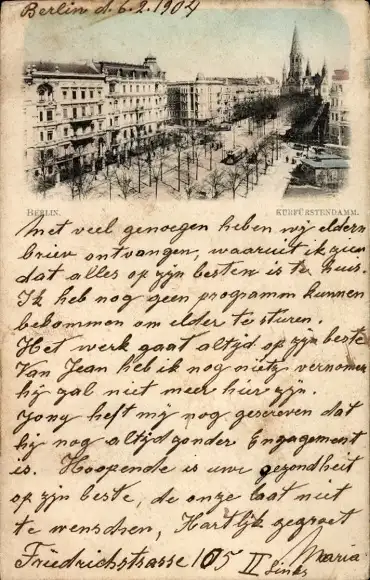 Berlin d. 6.2.1904
BERLIN.
KURFÜRSTENDAMM.
Met veel genoegen heben wij eldern
briev ontvangen, waaruit ik zien
dat alles op zijn besten is te huis.
Ik heb nog geen programm kunnen
bekommen om elder te sturen.
Het werk gaat altijd op zijn beste
Van Jean heb ik nog nietz vernomen
hij zal niet meer hier zijn.
Jony heft mij nog gescreven dat
hij nog altijd zonder Engagement
is. Hoopende is uwe gezondheit
op zijn beste, de onze laat niet
te wenschen, Hartlijk gegroet
Maria
Friedrichstrasse 105 II
Links